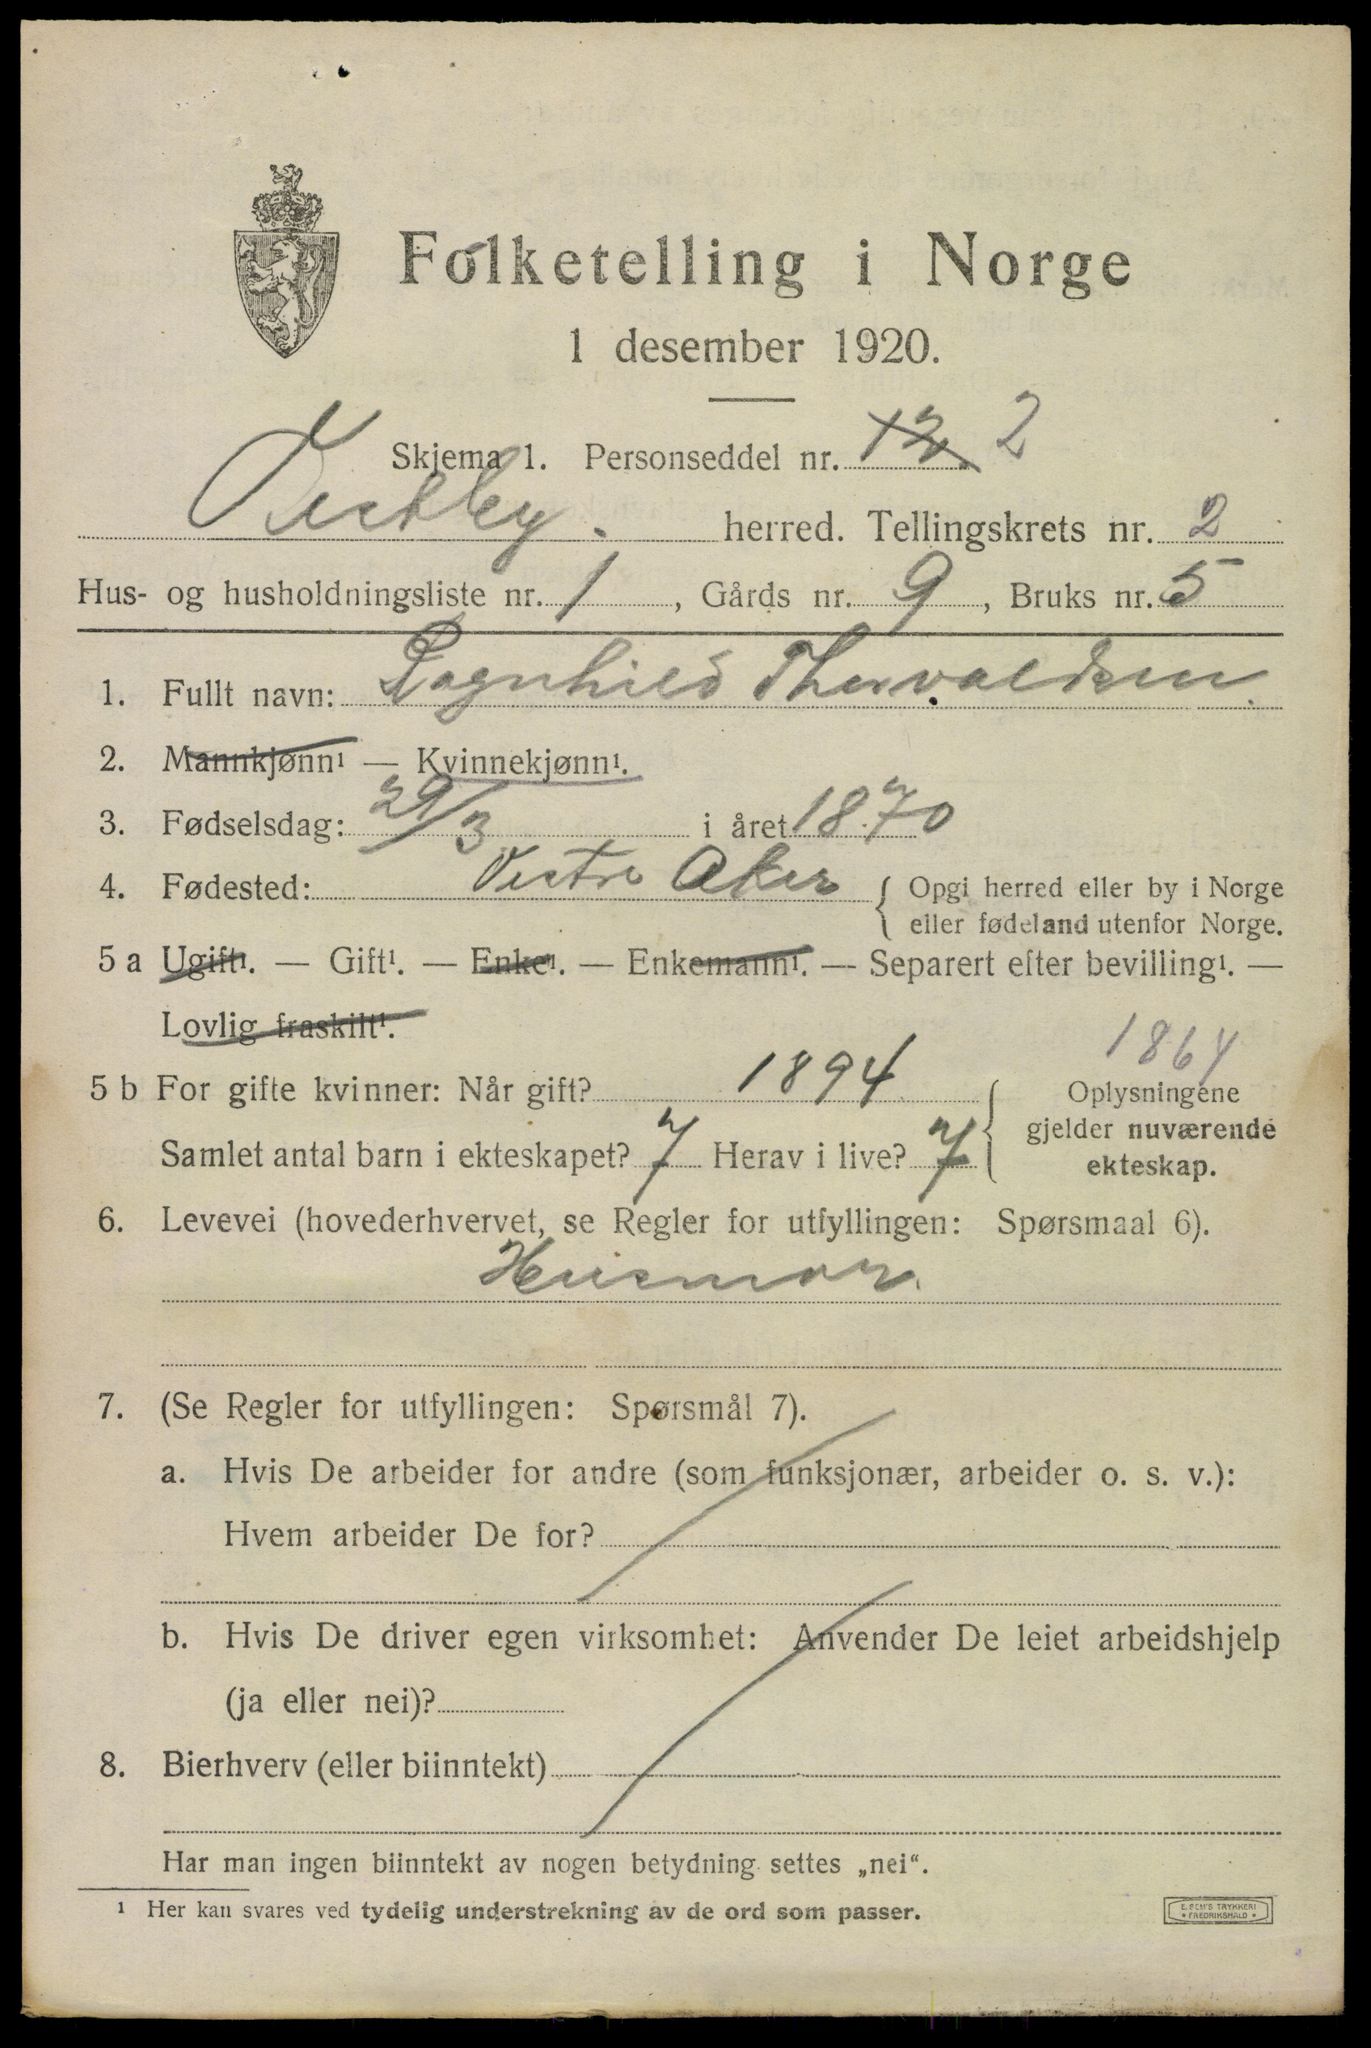 Folketelling i Norge
1 desember 1920.
Skjema 1. Personseddel nr. 12. 2
Vestby. herred. Tellingskrets nr. 2
Hus- og husholdningsliste nr. 1, Gårds nr. 9, Bruks nr. 5
1. Fullt navn: Dagnhild Thorvaldsen
2. Mannkjønn¹ — Kvinnekjønn¹.
3. Fødselsdag: 29/3 i året 1870
4. Fødested: Vestre Aker { Opgi herred eller by i Norge
eller fødeland utenfor Norge.
5 a Ugift¹. — Gift¹. — Enke¹. — Enkemann¹. — Separert efter bevilling¹. —
Lovlig fraskilt¹.
1864
5 b For gifte kvinner: Når gift? 1894
Samlet antal barn i ekteskapet? 7 Herav i live? 7
Oplysningene
gjelder nuværende
ekteskap.
6. Levevei (hovederhvervet, se Regler for utfyllingen: Spørsmaal 6).
Husmor.
7. (Se Regler for utfyllingen: Spørsmål 7).
a. Hvis De arbeider for andre (som funksjonær, arbeider o. s. v.):
Hvem arbeider De for?
b. Hvis De driver egen virksomhet: Anvender De leiet arbeidshjelp
(ja eller nei)?
8. Bierhverv (eller biinntekt)
Har man ingen biinntekt av nogen betydning settes „nei“.
¹ Her kan svares ved tydelig understrekning av de ord som passer.
E. SEM'S TRYKKERI
* FREDRIKSHALD *